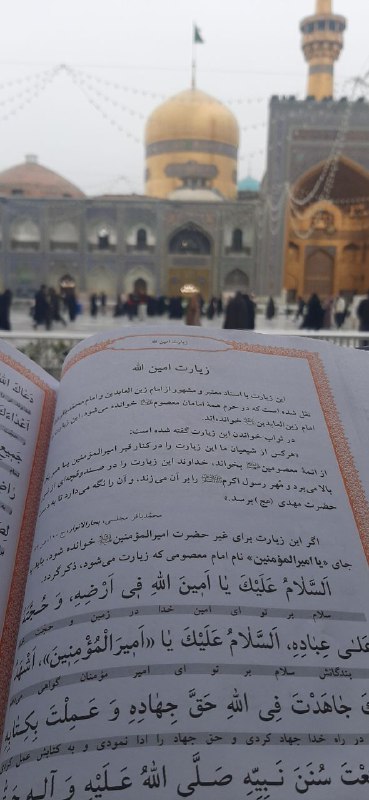 زیارت امین الله
زیارت امین الله
این زیارت با اسناد معتبر و مشهور از امام زین العابدین و امام
نقل شده است که در حرم همهٔ امامان معصوم خوانده می‌شود. این
امام زین العابدین خوانده‌اند.
در ثواب خواندن این زیارت گفته شده است:
«هرکس از شیعیان ما این زیارت را در کنار قبر امیرالمؤمنین یا
از ائمهٔ معصومین بخواند، خداوند این زیارت را در صندوقچه‌ای از
بالا می‌برد و مُهر رسول اکرم را بر آن می‌زند، و آن را نگه می‌دارد تا به
حضرت مهدی (عج) برسد.»
محمدباقر مجلسی، بحارالانوار، ج
اگر این زیارت برای غیر حضرت امیرالمؤمنین خوانده شود، باید
جای «یا امیرالمؤمنین» نام امام معصومی که زیارت می‌شود، ذکر گردد.
اَلسَّلامُ عَلَیْکَ یا اَمینَ اللهِ فی اَرْضِهِ، وَ
سلام بر تو ای امین خدا در زمین و حجت
عَلی عِبادِهِ، اَلسَّلامُ عَلَیْکَ یا «اَمیرَالْمُؤْمِنینَ»، اَشْهَدُ
بندگانش سلام بر تو ای امیر مؤمنان گواهی
جاهَدْتَ فِی اللهِ حَقَّ جِهادِهِ وَ عَمِلْتَ بِکِتابِهِ
در راه خدا جهاد کردی و حق جهاد را ادا نمودی و به کتابش عمل کردی
سُنَنَ نَبِیِّهِ صَلَّی اللهُ عَلَیْهِ وَ آلِهِ